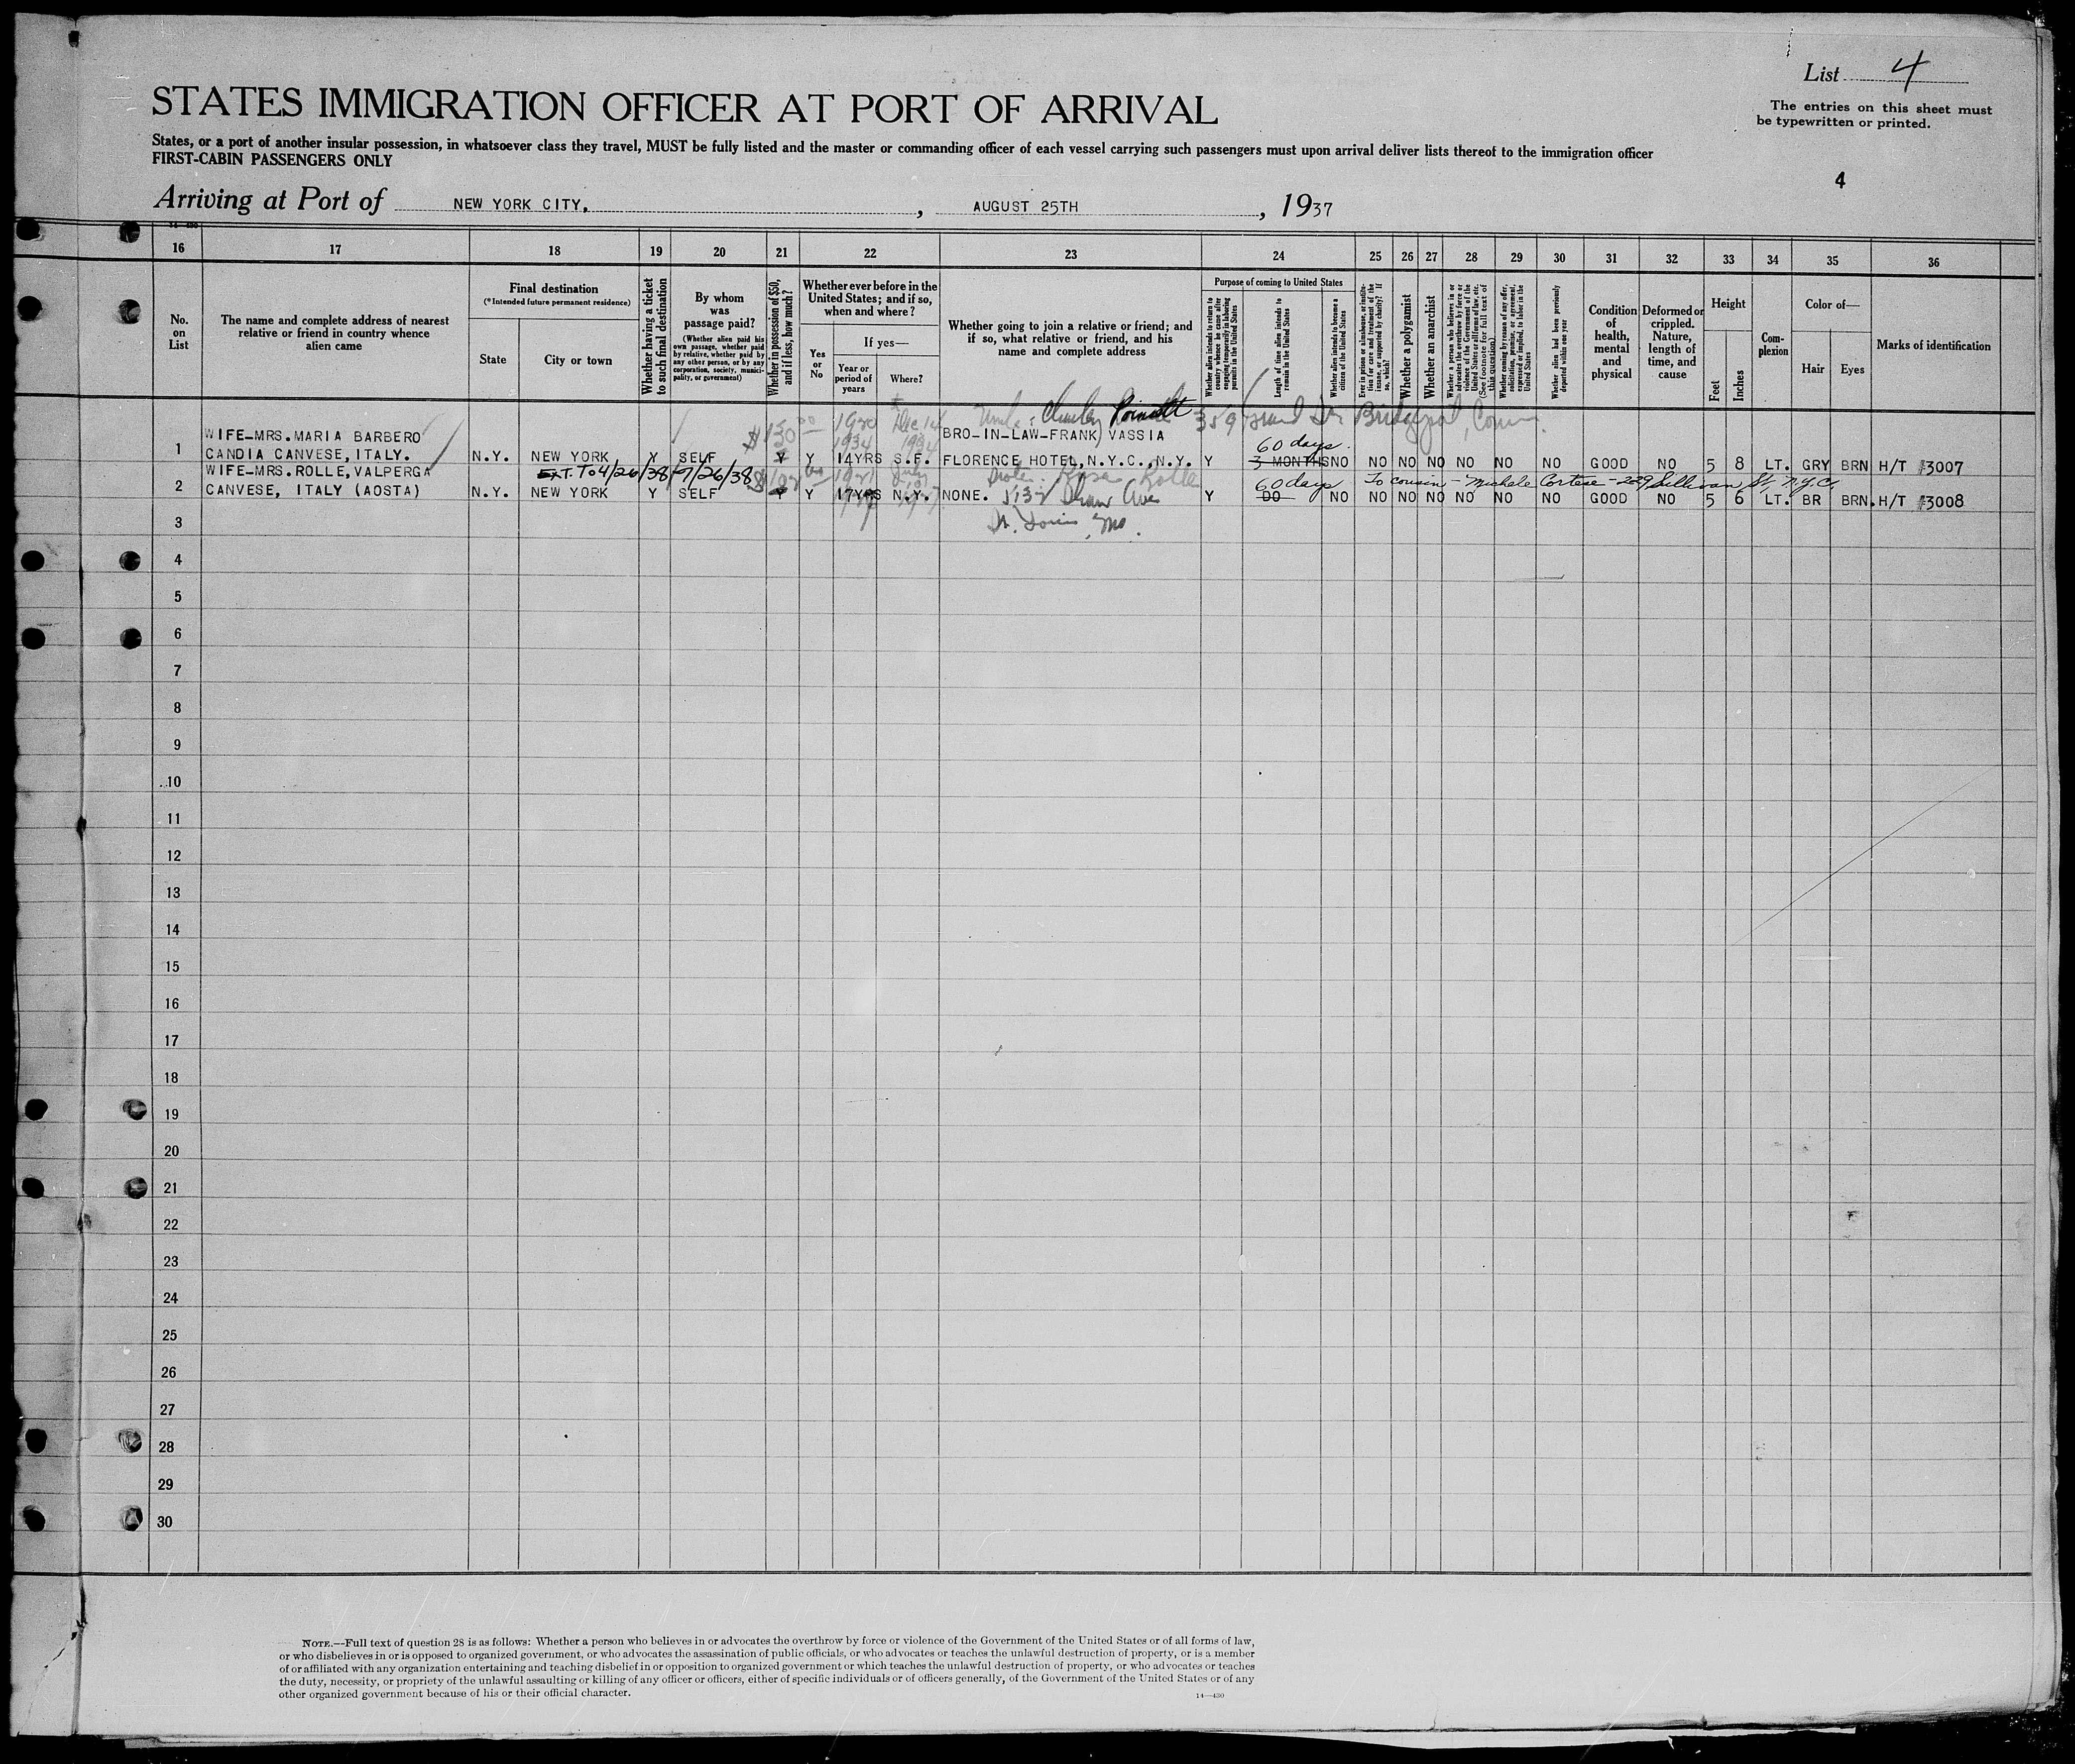 List 4
STATES IMMIGRATION OFFICER AT PORT OF ARRIVAL
The entries on this sheet must
be typewritten or printed.
States, or a port of another insular possession, in whatsoever class they travel, MUST be fully listed and the master or commanding officer of each vessel carrying such passengers must upon arrival deliver lists thereof to the immigration officer
FIRST-CABIN PASSENGERS ONLY
4
Arriving at Port of NEW YORK CITY, , AUGUST 25TH , 1937
16 17 18 19 20 21 22 23 24 25 26 27 28 29 30 31 32 33 34 35 36
No.
on
List
The name and complete address of nearest
relative or friend in country whence
alien came
Final destination
(*Intended future permanent residence)
State
City or town
Whether having a ticket
to such final destination
By whom
was
passage paid?
(Whether alien paid his
own passage, whether paid
by relative, whether paid by
any other person, or by any
corporation, society, munici-
pality, or government)
Whether in possession of $50,
and if less, how much?
Whether ever before in the
United States; and if so,
when and where?
Yes
or
No
If yes—
Year or
period of
years
Where?
Whether going to join a relative or friend; and
if so, what relative or friend, and his
name and complete address
Purpose of coming to United States
Whether alien intends to return to
country whence he came after
engaging temporarily in laboring
pursuits in the United States
Length of time alien intends to
remain in the United States
Whether alien intends to become a
citizen of the United States
Ever in prison or almshouse, or institu-
tion for care and treatment of the
insane, or supported by charity? If
so, which?
Whether a polygamist
Whether an anarchist
Whether a person who believes in or
advocates the overthrow by force or
violence of the Government of the
United States or all forms of law, etc.
(See footnote for full text of
this question)
Whether coming by reason of any offer,
solicitation, promise, or agreement,
expressed or implied, to labor in the
United States
Whether alien had been previously
deported within one year
Condition
of
health,
mental
and
physical
Deformed or
crippled.
Nature,
length of
time, and
cause
Height
Feet
Inches
Com-
plexion
Color of—
Hair
Eyes
Marks of identification
$130 00 1920 Dec 14 Uncle: Charley 359 Grand St. Bridgeport, Conn.
1934 1934
WIFE-MRS.MARIA BARBERO BRO-IN-LAW-FRANK VASSIA 60 days.
1 CANDIA CANVESE, ITALY. N.Y. NEW YORK Y SELF Y Y 14YRS S.F. FLORENCE HOTEL,N.Y.C.,N.Y. Y 3 MONTHS NO NO NO NO NO NO NO GOOD NO 5 8 LT. GRY BRN H/T #3007
WIFE-MRS.ROLLE,VALPERGA EXT. To 4/26/38 - 7/26/38 1921 July Rolle 60 days To cousin - Michele Cortese - 229 Sullivan St. N.Y.C.
2 CANVESE, ITALY (AOSTA) N.Y. NEW YORK Y SELF Y Y 17YRS N.Y. NONE. 5132 Shaw Ave Y DO NO NO NO NO NO NO NO GOOD NO 5 6 LT. BR BRN. H/T #3008
St. Louis, Mo.
3
4
5
6
7
8
9
10
11
12
13
14
15
16
17
18
19
20
21
22
23
24
25
26
27
28
29
30
NOTE.—Full text of question 28 is as follows: Whether a person who believes in or advocates the overthrow by force or violence of the Government of the United States or of all forms of law,
or who disbelieves in or is opposed to organized government, or who advocates the assassination of public officials, or who advocates or teaches the unlawful destruction of property, or is a member
of or affiliated with any organization entertaining and teaching disbelief in or opposition to organized government or which teaches the unlawful destruction of property, or who advocates or teaches
the duty, necessity, or propriety of the unlawful assaulting or killing of any officer or officers, either of specific individuals or of officers generally, of the Government of the United States or of any
other organized government because of his or their official character.
14—430